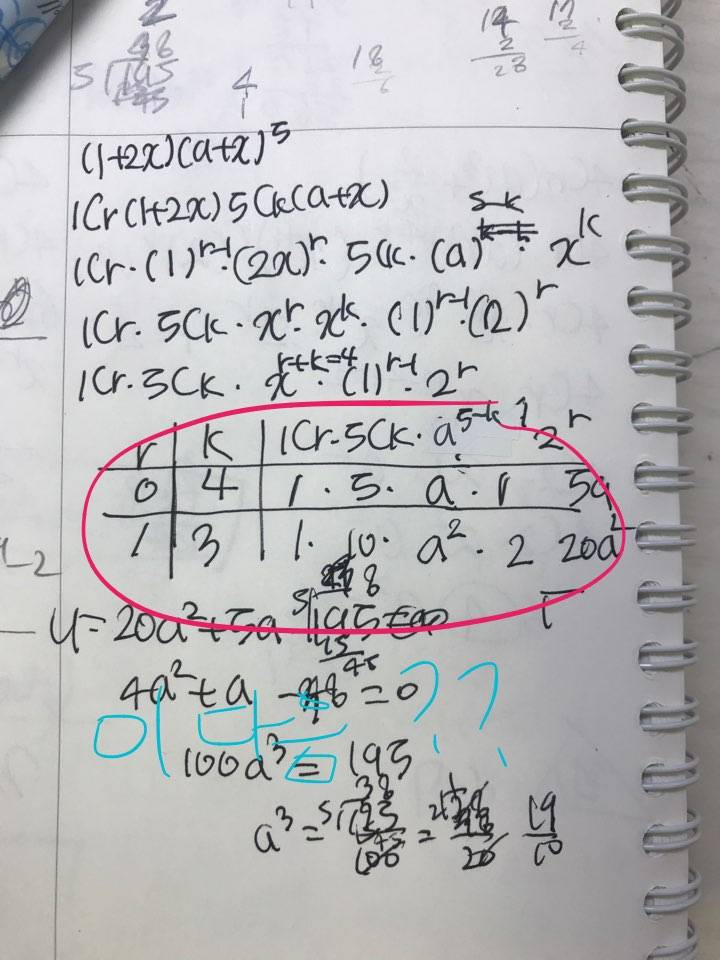 2
5 195
4
1
18
14
2
28
(1+2x)(a+x)^5
1Cr(1+2x) 5Ck(a+x)
5-k
1Cr·(1)^r-1·(2x)^r· 5Ck·(a) x^k
1Cr· 5Ck· x^r· x^k· (1)^r-1·(2)^r
1Cr·5Ck· x^r+k=4·(1)^r-1·2^r
r k 1Cr·5Ck·a^5-k 2^r
0 4 1·5·a·1 5a
1 3 1·10·a²·2 20a²
4=20a²+5a 5 195
45
45
4a²+a =0
이 다음??
100a³=195
38
a³= 5 195
100
= 20
19
10